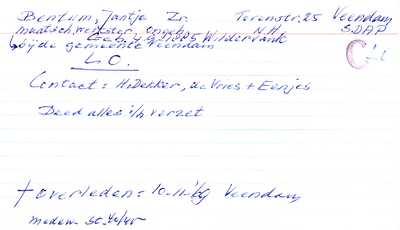 Bentum, Jantje Zr. Torenstr. 25 Veendam
maatsch. werkster, Ongeh. N.H. SDAP
Geb. 4-9-1885 Wildervank
bij de gemeente Veendam
L.O.
Contact = H. Dekker, de Vries + Eenjes
Deed alles i/h verzet
† overleden = 10-11-'69 Veendam
medew. st. 40/45